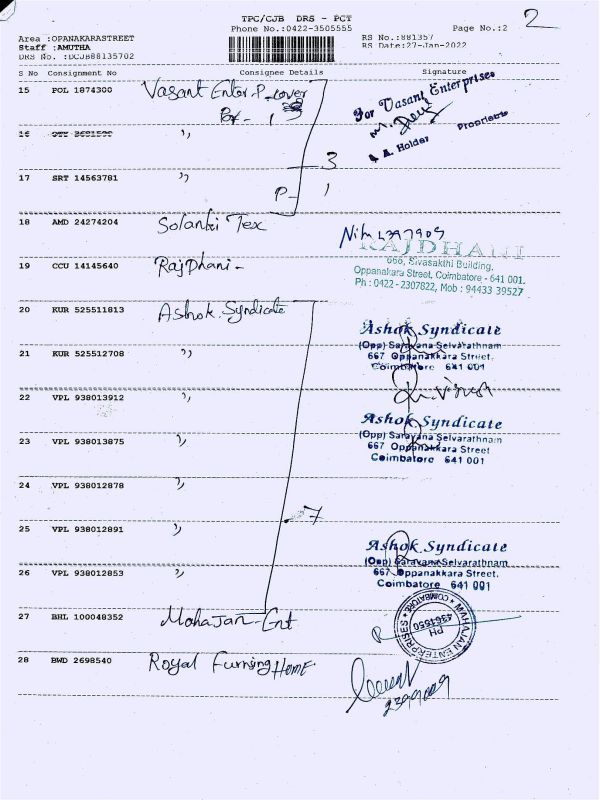 2
TPC/CJB DRS - PCT
Phone No.:0422-3505555
Page No.:2
Area :OPANAKARASTREET
Staff :AMUTHA
DRS No. :DCJB88135702
RS No.:881357
RS Date:27-Jan-2022
S No Consignment No Consignee Details Signature
15 POL 1874300 Vasant Enter. P-cover
Box - 1
For Vasant Enterprises
P. A. Holder Proprietrix
16 〃
3
17 SRT 14563781 〃
P - 1
18 AMD 24274204 Solanki Tex
19 CCU 14145640 RajDhani -
RAJDHANI
666, Sivasakthi Building,
Oppanakara Street, Coimbatore - 641 001.
Ph : 0422 - 2307822, Mob : 94433 39527
20 KUR 525511813 Ashok. Syndicate
Ashok Syndicate
(Opp) Saravana Selvarathnam
667 Oppanakkara Street,
Coimbatore 641 001
21 KUR 525512708 〃
22 VPL 938013912 〃
Ashok Syndicate
(Opp) Saravana Selvarathnam
667 Oppanakkara Street
Coimbatore 641 001
23 VPL 938013875 〃
24 VPL 938012878 〃
7
25 VPL 938012891 〃
Ashok Syndicate
(Opp) Saravana Selvarathnam
667 Oppanakkara Street,
Coimbatore 641 001
26 VPL 938012853 〃
27 BHL 100048352 Mahajan. Ent
MAHAJAN ENTERPRISES
COIMBATORE
PH
4361550
28 BWD 2698540 Royal Furning HOME.